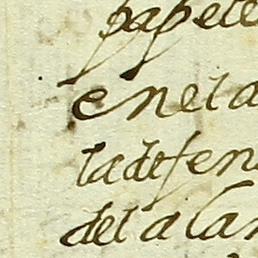 papele
en el a
la defen
del a lar